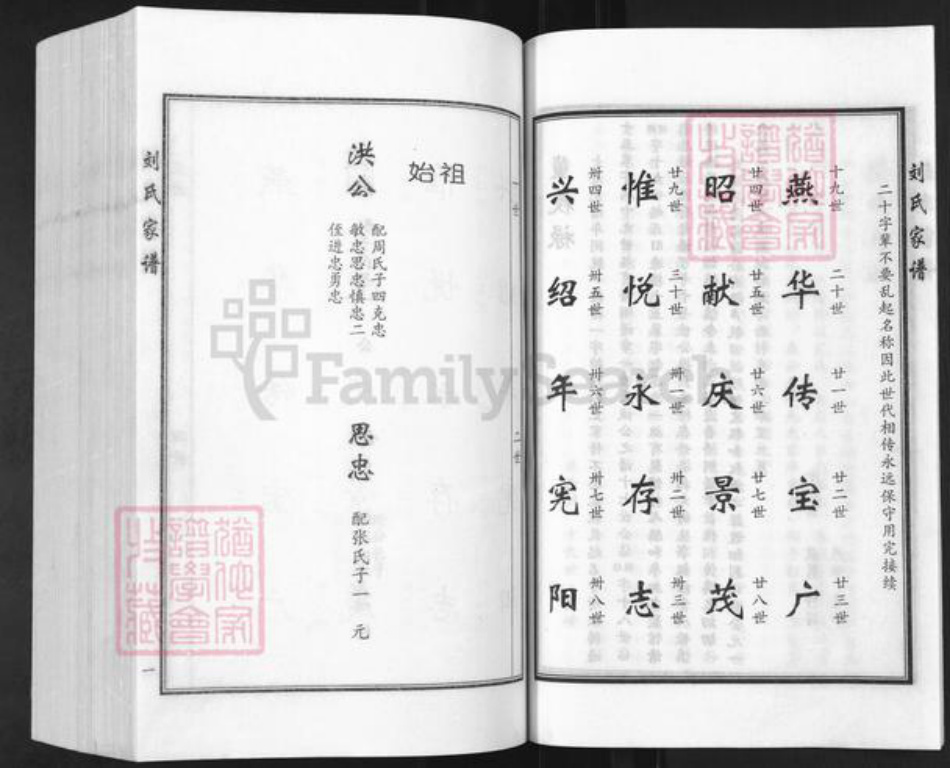 刘氏家谱
二十字辈不要乱起名称因此世代相传永远保守用完接续
十九世 二十世 廿一世 廿二世 廿三世
燕华传宝广
廿四世 廿五世 廿六世 廿七世 廿八世
昭献庆景茂
廿九世 三十世 卅一世 卅二世 卅三世
惟悦永存志
卅四世 卅五世 卅六世 卅七世 卅八世
兴绍年宪阳
一世
二世
始祖
洪公
配周氏子四克忠
敏忠思忠慎忠二
侄进忠勇忠
思忠
配张氏子一元
刘氏家谱
一
FamilySearch